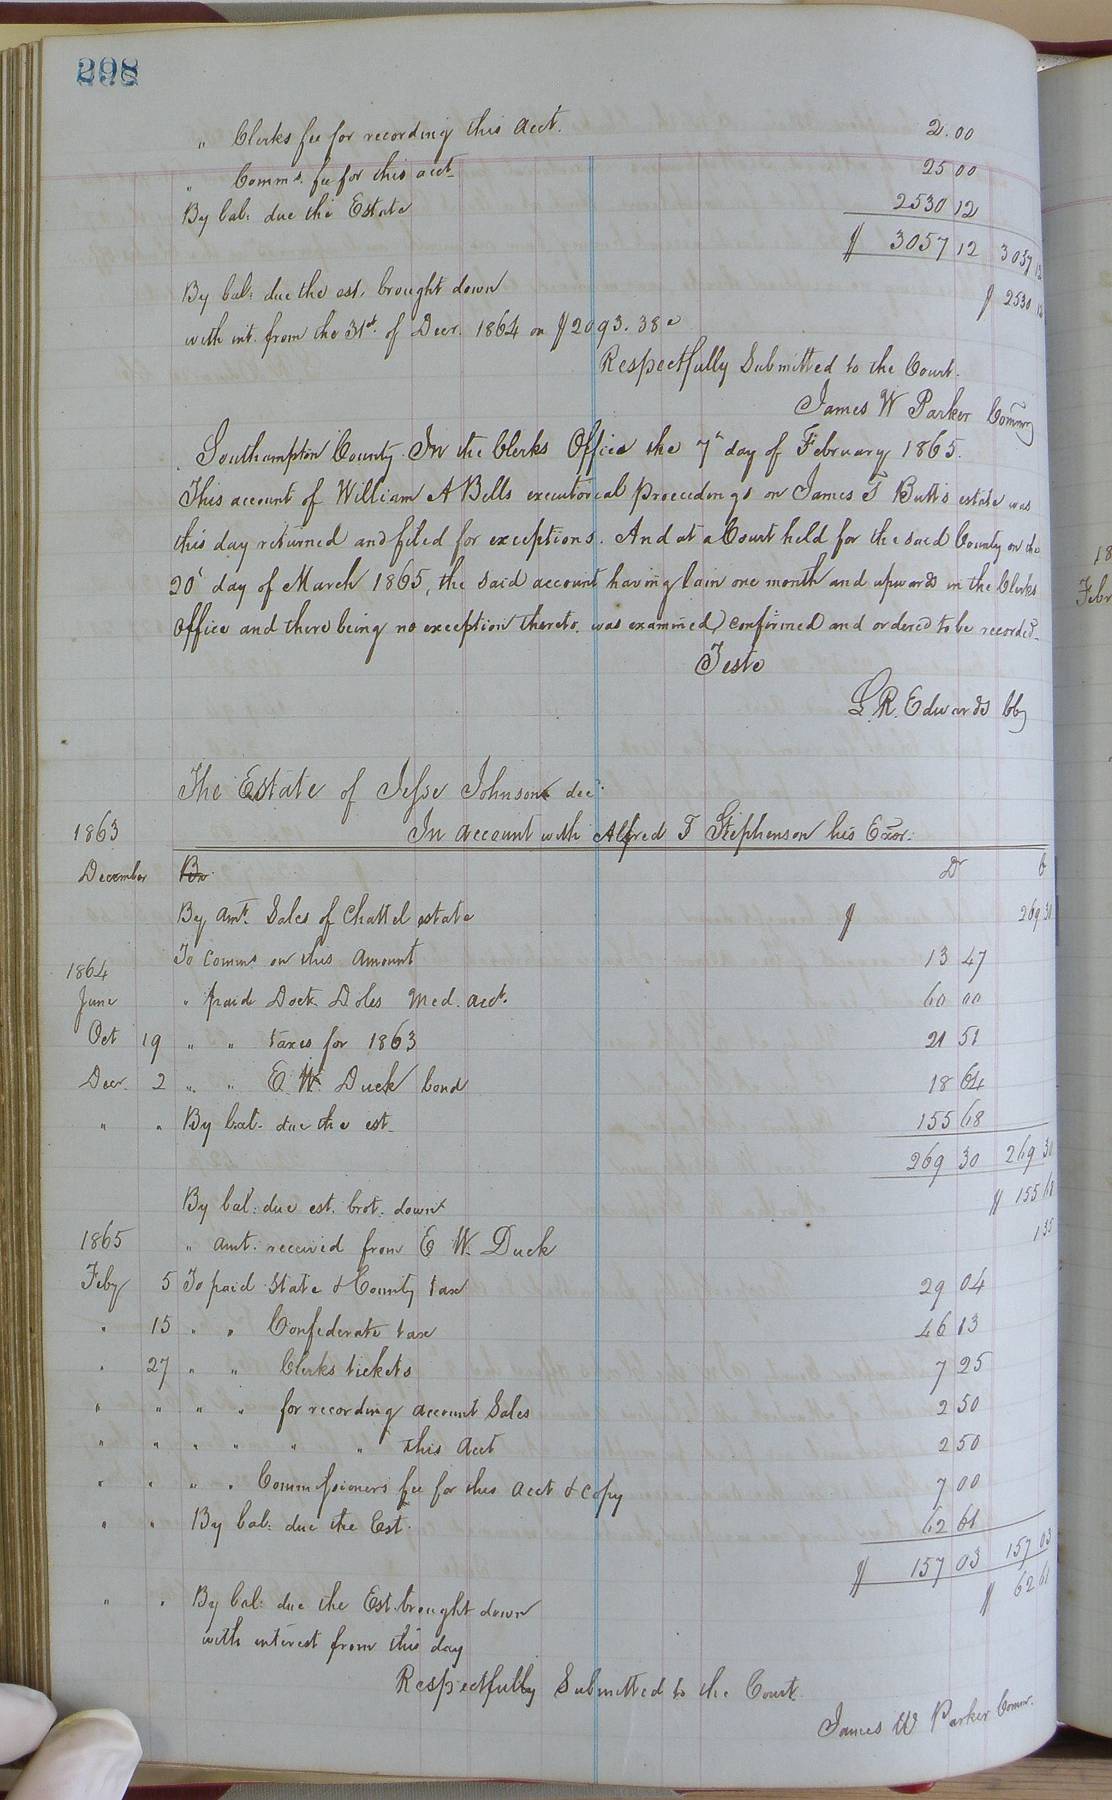 298
" Clerks fee for recording this acct. 2.00
" Comms. fee for this acct 25 00
By bal: due the Estate 2530 12
$ 3057 12 3057 12
By bal: due the est. brought down $ 2530 12
with int. from the 31st of Decr. 1864 on $2093.38c
Respectfully Submitted to the Court.
James W Parker Commr
Southampton County. In the Clerks Office the 7th day of February 1865.
This account of William A Bells executorial proceedings on James T Butts estate was
this day returned and filed for exceptions. And at a Court held for the said County on the
20th day of March 1865, the said account having lain one month and upwards in the Clerks
Office and there being no exception thereto, was examined, confirmed and ordered to be recorded
Teste
L. R. Edwards
The Estate of Jesse Johnson dec:
1863 In account with Alfred T Stephenson his Exor:
December Dr
By amt. Sales of Chattel estate $ 269 30
To comms on this amount 13 47
1864
June " paid Doct. Doles Med. acct. 60 00
Oct 19 " " taxes for 1863 21 51
Decr. 2 " " E. W. Duck bond 18 64
" " By bal. due the est. 155 68
269 30 269 30
By bal: due est. brot. down $ 155 68
1865 " amt. received from E W. Duck 1 35
Feby 5 To paid State & County tax 29 04
" 15 " " Confederate tax 46 13
" 27 " " Clerks tickets 7 25
" " " " for recording account Sales 2 50
" " " " " " this acct 2 50
" " " " Commissioners fee for this acct & copy 7 00
" " By bal: due the Est. 62 61
$ 157 03 157 03
" " By bal: due the Est. brought down $ 62 61
with interest from this day
Respectfully Submitted to the Court
James W Parker Commr.
18
Febr